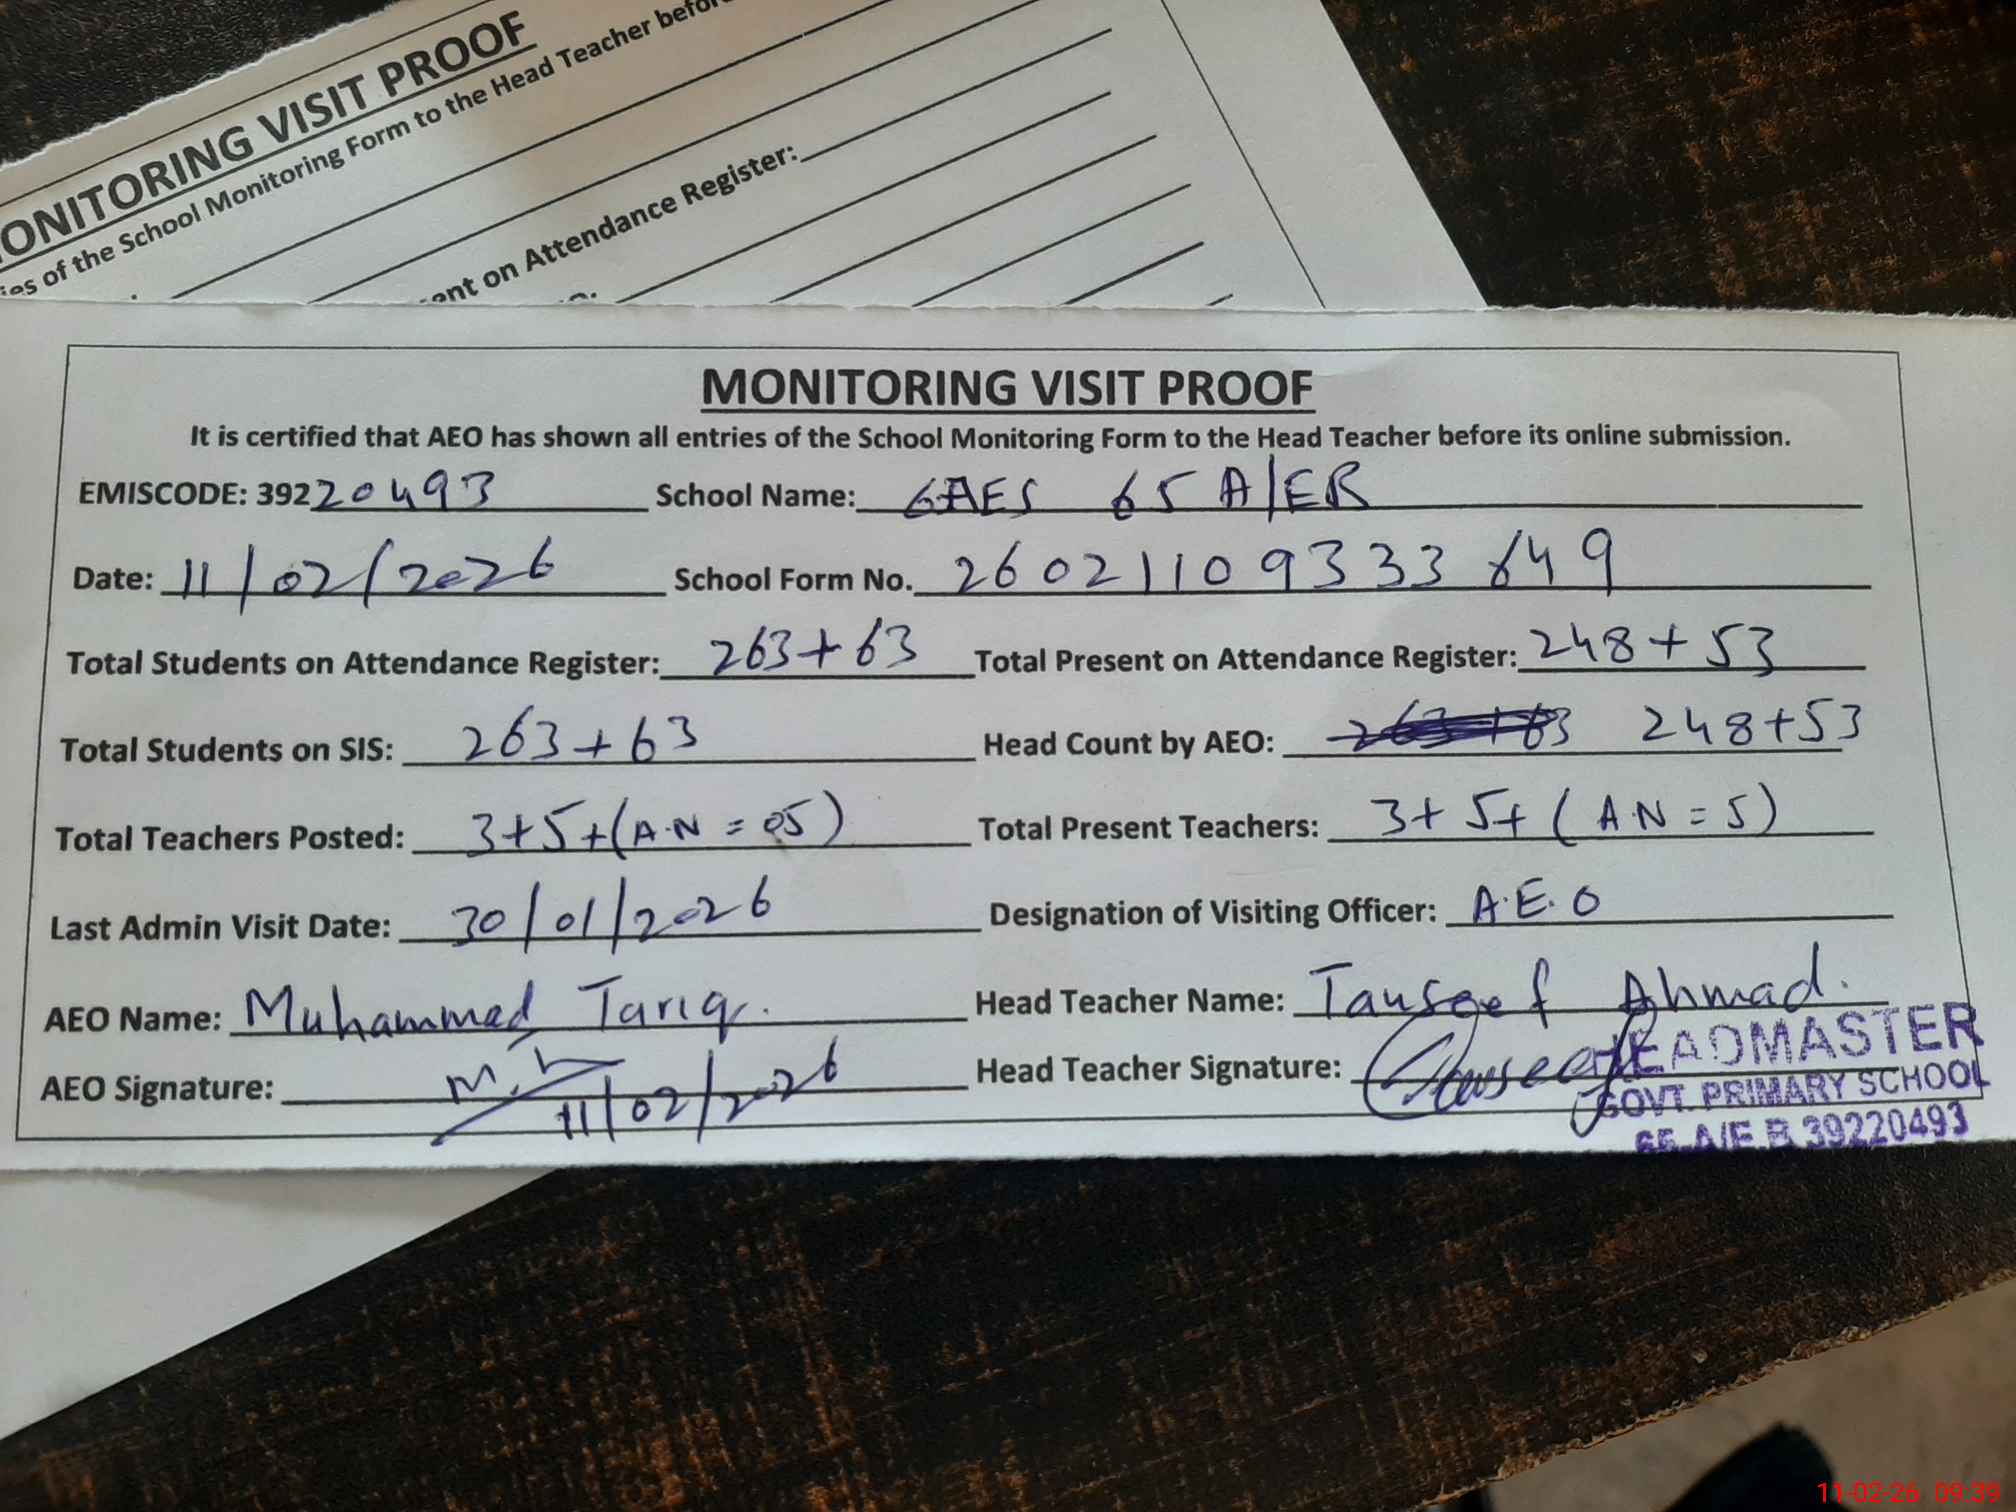 ONITORING VISIT PROOF
ies of the School Monitoring Form to the Head Teacher before
ent on Attendance Register:
MONITORING VISIT PROOF
It is certified that AEO has shown all entries of the School Monitoring Form to the Head Teacher before its online submission.
EMISCODE: 39220493 School Name: GAES 65 A/ER
Date: 11/02/2026 School Form No. 26021109333 649
Total Students on Attendance Register: 263+63 Total Present on Attendance Register: 248+53
Total Students on SIS: 263+63 Head Count by AEO: 248+53
Total Teachers Posted: 3+5+(A.N = 05) Total Present Teachers: 3+5+(A.N = 5)
Last Admin Visit Date: 30/01/2026 Designation of Visiting Officer: A.E.O
AEO Name: Muhammad Tariq. Head Teacher Name: Tauseef Ahmad.
AEO Signature: 11/02/2026 Head Teacher Signature: Tauseef
HEADMASTER
GOVT. PRIMARY SCHOOL
65-A/E.B 39220493
11-02-26 09:39